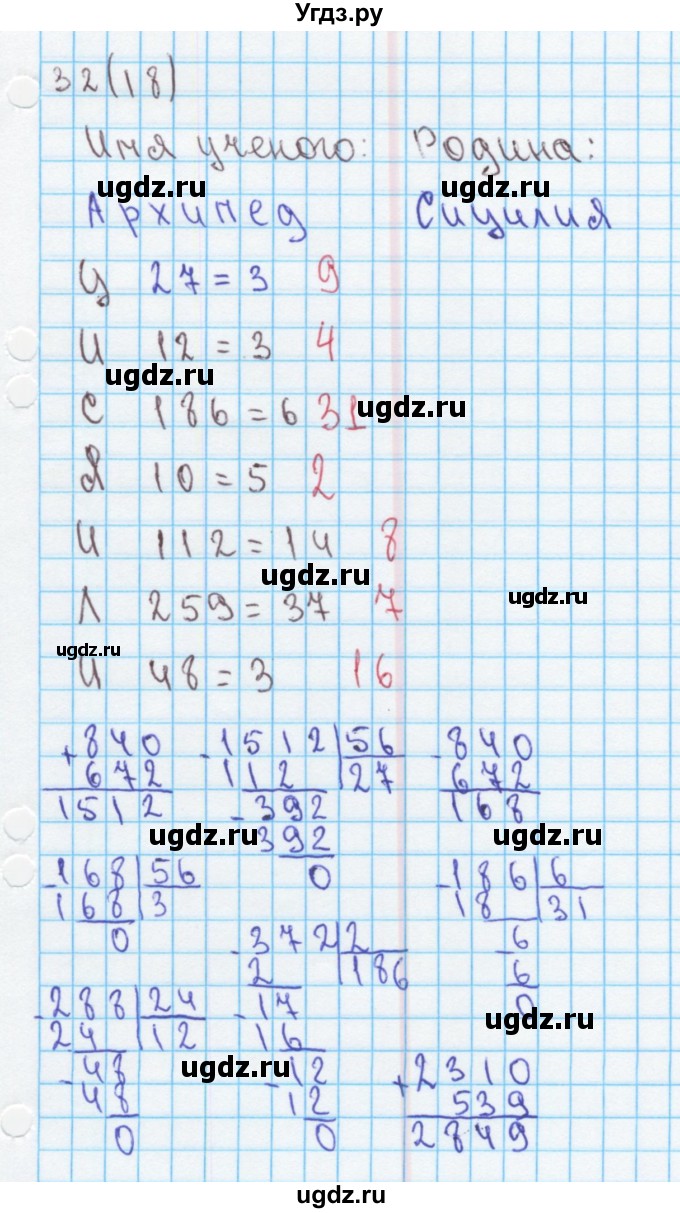 Угдз.ру
32(18)
Имя ученого: Родина:
ugdz.ru ugdz.ru
Архимед Сицилия
Ц 27 = 3 9
И 12 = 3 4
ugdz.ru
С 186 = 6 31
ugdz.ru
Я 10 = 5 2
И 112 = 14 8
ugdz.ru
Л 259 = 37 7
ugdz.ru
ugdz.ru
И 48 = 3 16
+ 840 - 1512 | 56 - 840
672 112 | 27 672
1512 - 392 168
ugdz.ru ugdz.ru
392
0
- 168 | 56 - 186 | 6
168 | 3 18 | 31
0 - 372 | 2 - 6
2 | 186 6
- 288 | 24 - 17 0
ugdz.ru
24 | 12 16
- 48 - 12 + 2310
ugdz.ru
48 12 539
0 0 2849
ugdz.ru